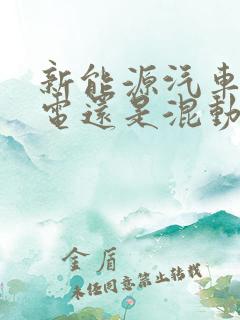 新能源汽車
電還是混動
金盾
未经同意禁止转载